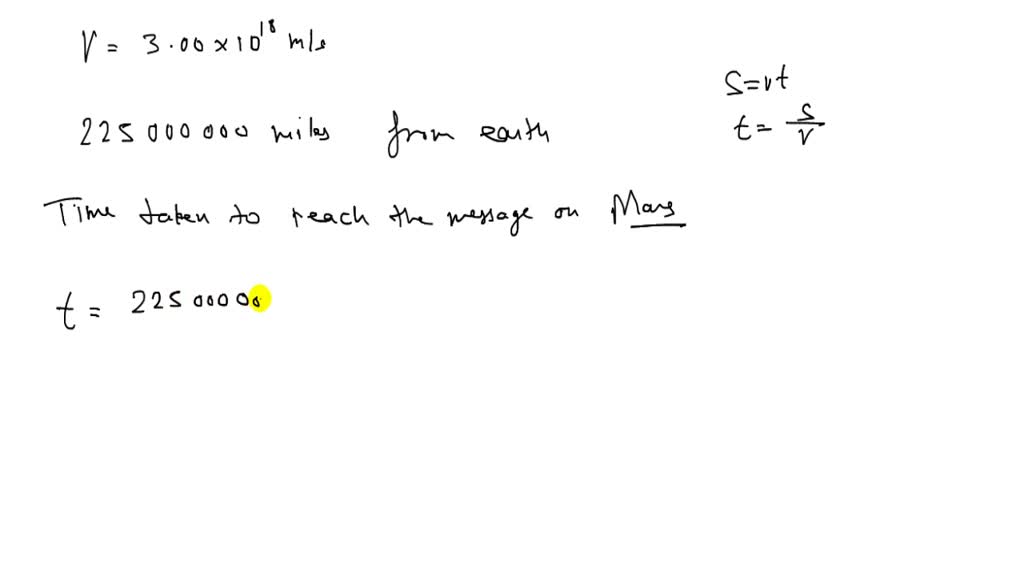 V = 3.00 × 10^18 m/s
S = vt
225 000 000 miles from earth
t = S/V
Time taken to reach the message on Mars
t = 225 000 00